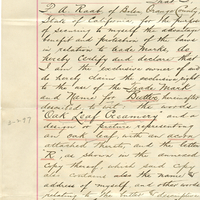 I, A. Raab of Belen, Orange County,
State of California for the purpose
of securing to myself the advantage
benefit and protection of the laws
in relation to Trade Marks, do
hereby Certify and declare that
I am the Exclusive owner of and
do hereby claim the exclusive right
to the use of the Trade Mark
and Name for Butter hereinafter
described to wit: words
Oak Leaf Creamery and a
design or picture representing
an oak leaf, with acorn
attached thereto, and the letter
"R", as shown in the annexed
copy thereof which said copy
also contains also the name &
address of myself and other words
relating to the butter &